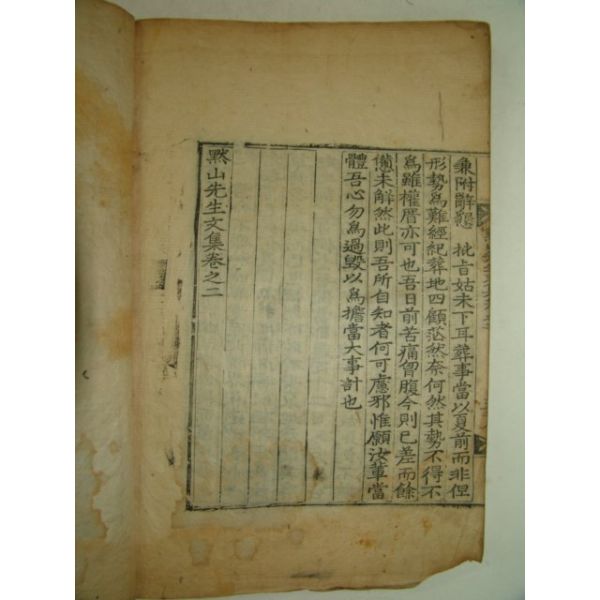 兼附辭懇 批旨姑未下耳葬事當以夏前而非但
形勢爲難經紀葬地四顧茫然奈何然其勢不得不
爲雖權厝亦可也吾日前苦痛胷腹今則已差而餘
憊未解然此則吾所自知者何可慮邪惟願汝輩當
體吾心勿爲過毁以爲擔當大事計也
黙山先生文集卷之二